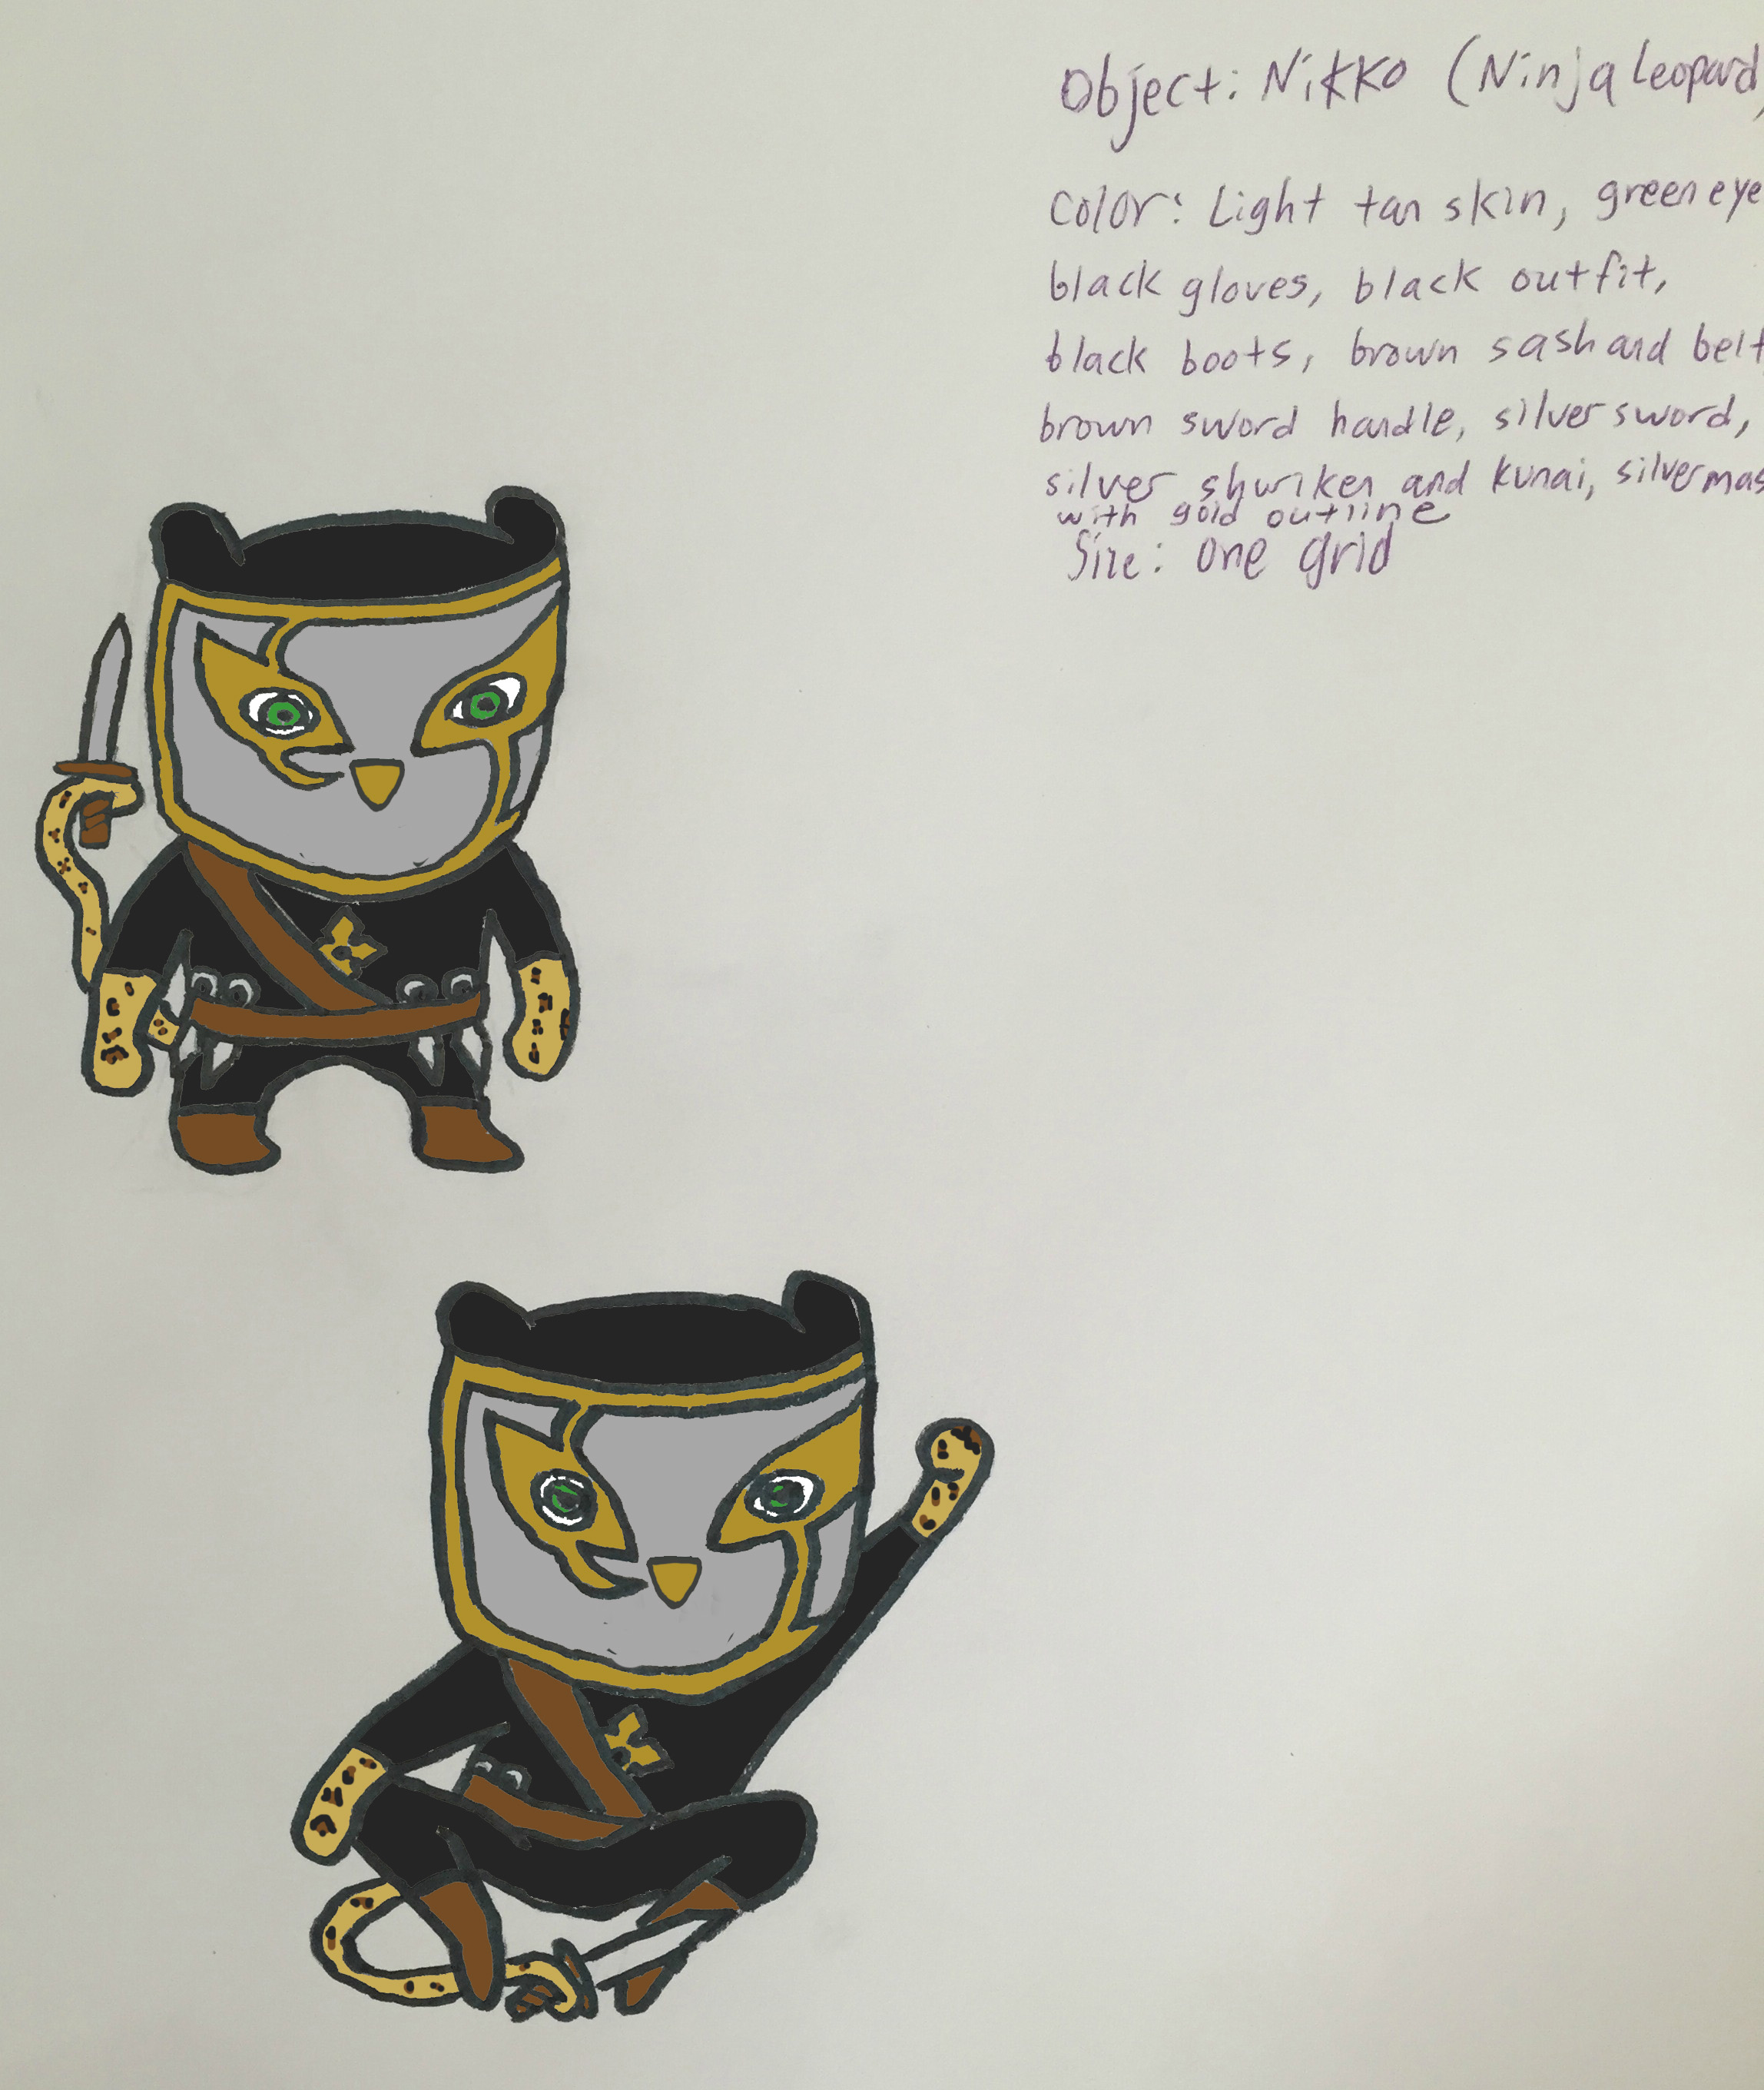 Object: Nikko (Ninja Leopard,
Color: Light tan skin, green eye
black gloves, black outfit,
black boots, brown sash and belt,
brown sword handle, silver sword,
silver shuriken and kunai, silver mas
with gold outline
Size: One grid